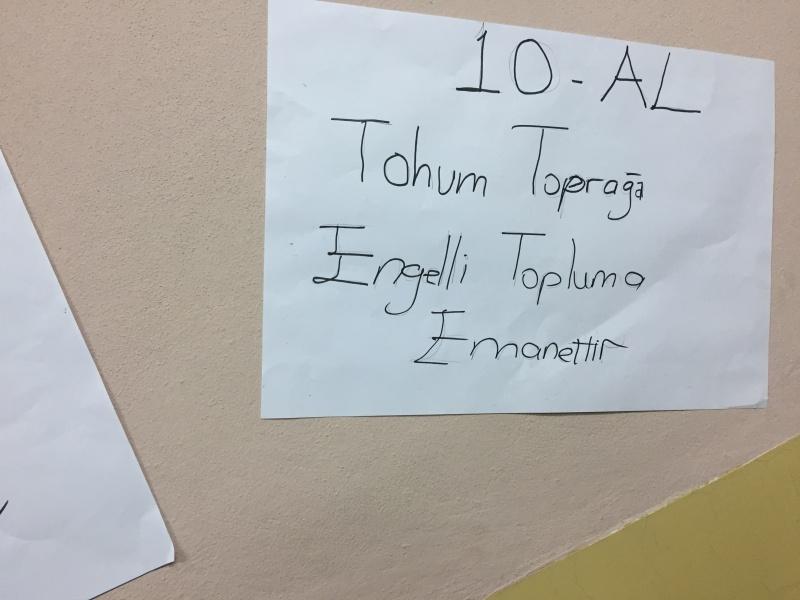 10-AL
Tohum Toprağa
Engelli Topluma
Emanettir